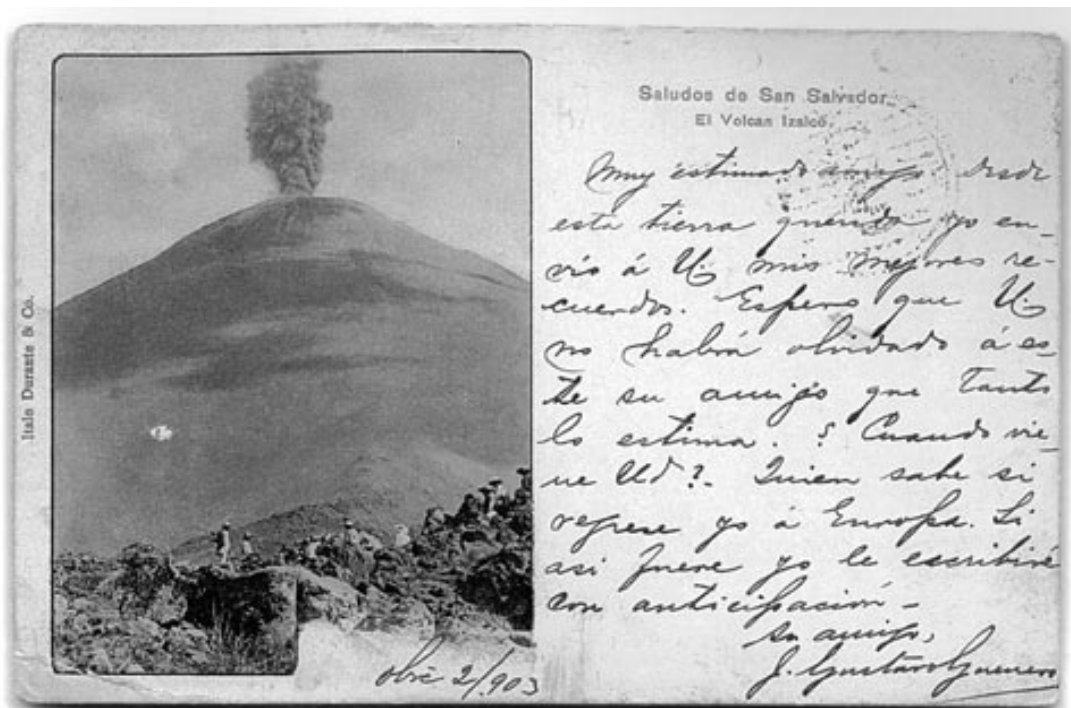 Italo Durante & Co.
Saludos de San Salvador.
El Volcan Izalco.
Muy estimado amigo desde
esta tierra querida yo en-
vio á U. mis mejores re-
cuerdos. Espero que U.
no habrá olvidado á es-
te su amigo que tanto
lo estima. ¿Cuando vie-
ne Ud?. Quien sabe si
regrese yo á Europa. Si
asi fuere yo le escribiré
con anticipación -
Su amigo,
J. Gustavo Guerrero
2/903